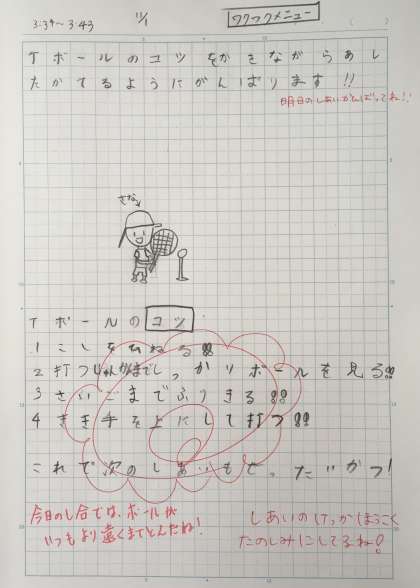 3:34〜3:43
11/1
ワクワクメニュー
Tボールのコツをかきながらあし
たかてるようにがんばります!!
明日のしあいがんばってね!!
さな
Tボールのコツ
1 こしをひねる!!
2 打つしゅんかんまでしっかりボールを見る!!
3 さいごまでふりきる!!
4 きき手を上にして打つ!!
これで次のしあいもぜったいかつ!
今日のし合では、ボールが
いつもより遠くまでとんだね!
しあいのけっかほうこく
たのしみにしてるね!